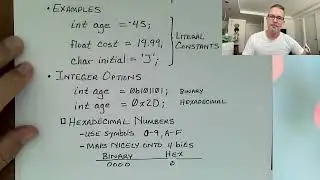 • EXAMPLES
int age = 45;
float cost = 19.99;
char initial = 'J';
LITERAL
CONSTANTS
• INTEGER OPTIONS
int age = 0b101101; BINARY
int age = 0x2D; HEXADECIMAL
HEXADECIMAL NUMBERS
- USE SYMBOLS 0-9, A-F
- MAPS NICELY ONTO 4 BITS
BINARY HEX
0000 0